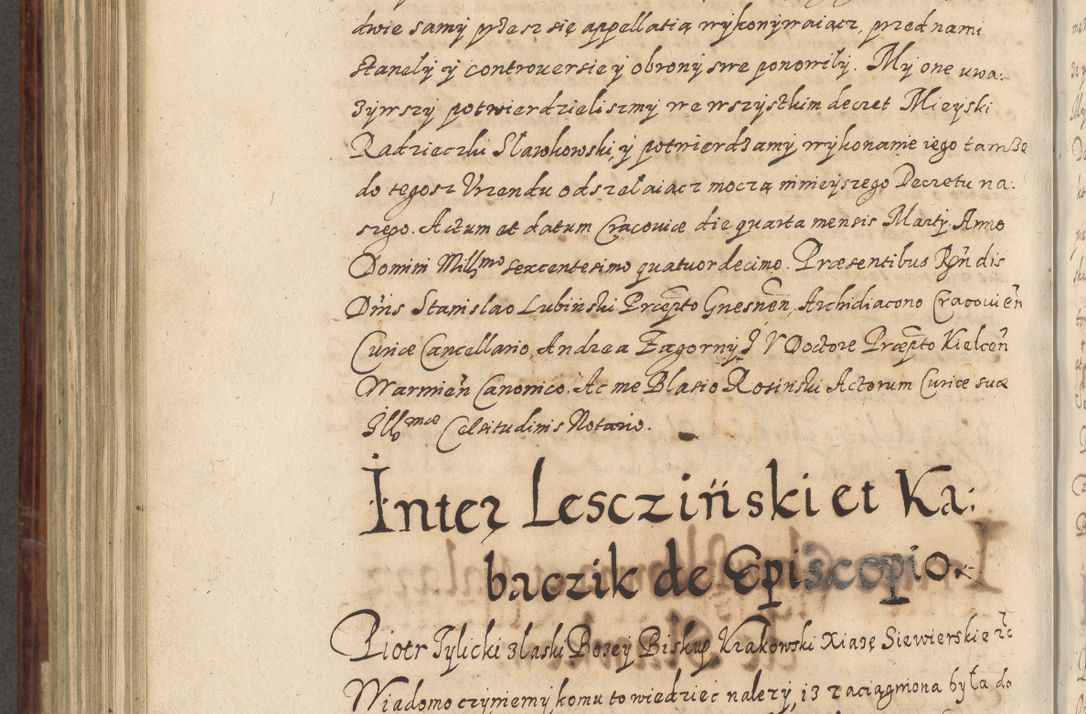 dwie samy przesz się appellatią wykonywaiącz, przed nami
stanely y controuersie y obrony swe ponowily. My one uwa:
zywszy potwierdzieliszmy we wszystkim decret Mieyski
Radzieczki Slawkowski, y potwierdzamy wykonanie iego tamze
do tegosz Vrzendu odszelaiacz moczą ninieyszego Decretu na:
szego. Actum et datum Cracoviæ die quarta mensis Martij. Anno
Domini Millmo sexcentesimo quatuordecimo. Præsentibus Rndis
Dnis Stanislao Lubinski Præpto Gnesnen, Archidiacono Cracovien
Curiæ Cancellario, Andrea Zagorny I V Doctore Præpto Kielcen
Warmien Canonico. Ac me Blasio Rosinski Actorum Curiæ suæ
Illmæ Celsitudinis Notario.
Inter Lescziński et Ka:
baczik de Episcopio.
Piotr Tylicki z laski Bozey Biskup Krakowski Xiązę Siewierskie etc
Wiadomo czyniemy, komu to wiedziec nalezy, iz zaciągniona była do